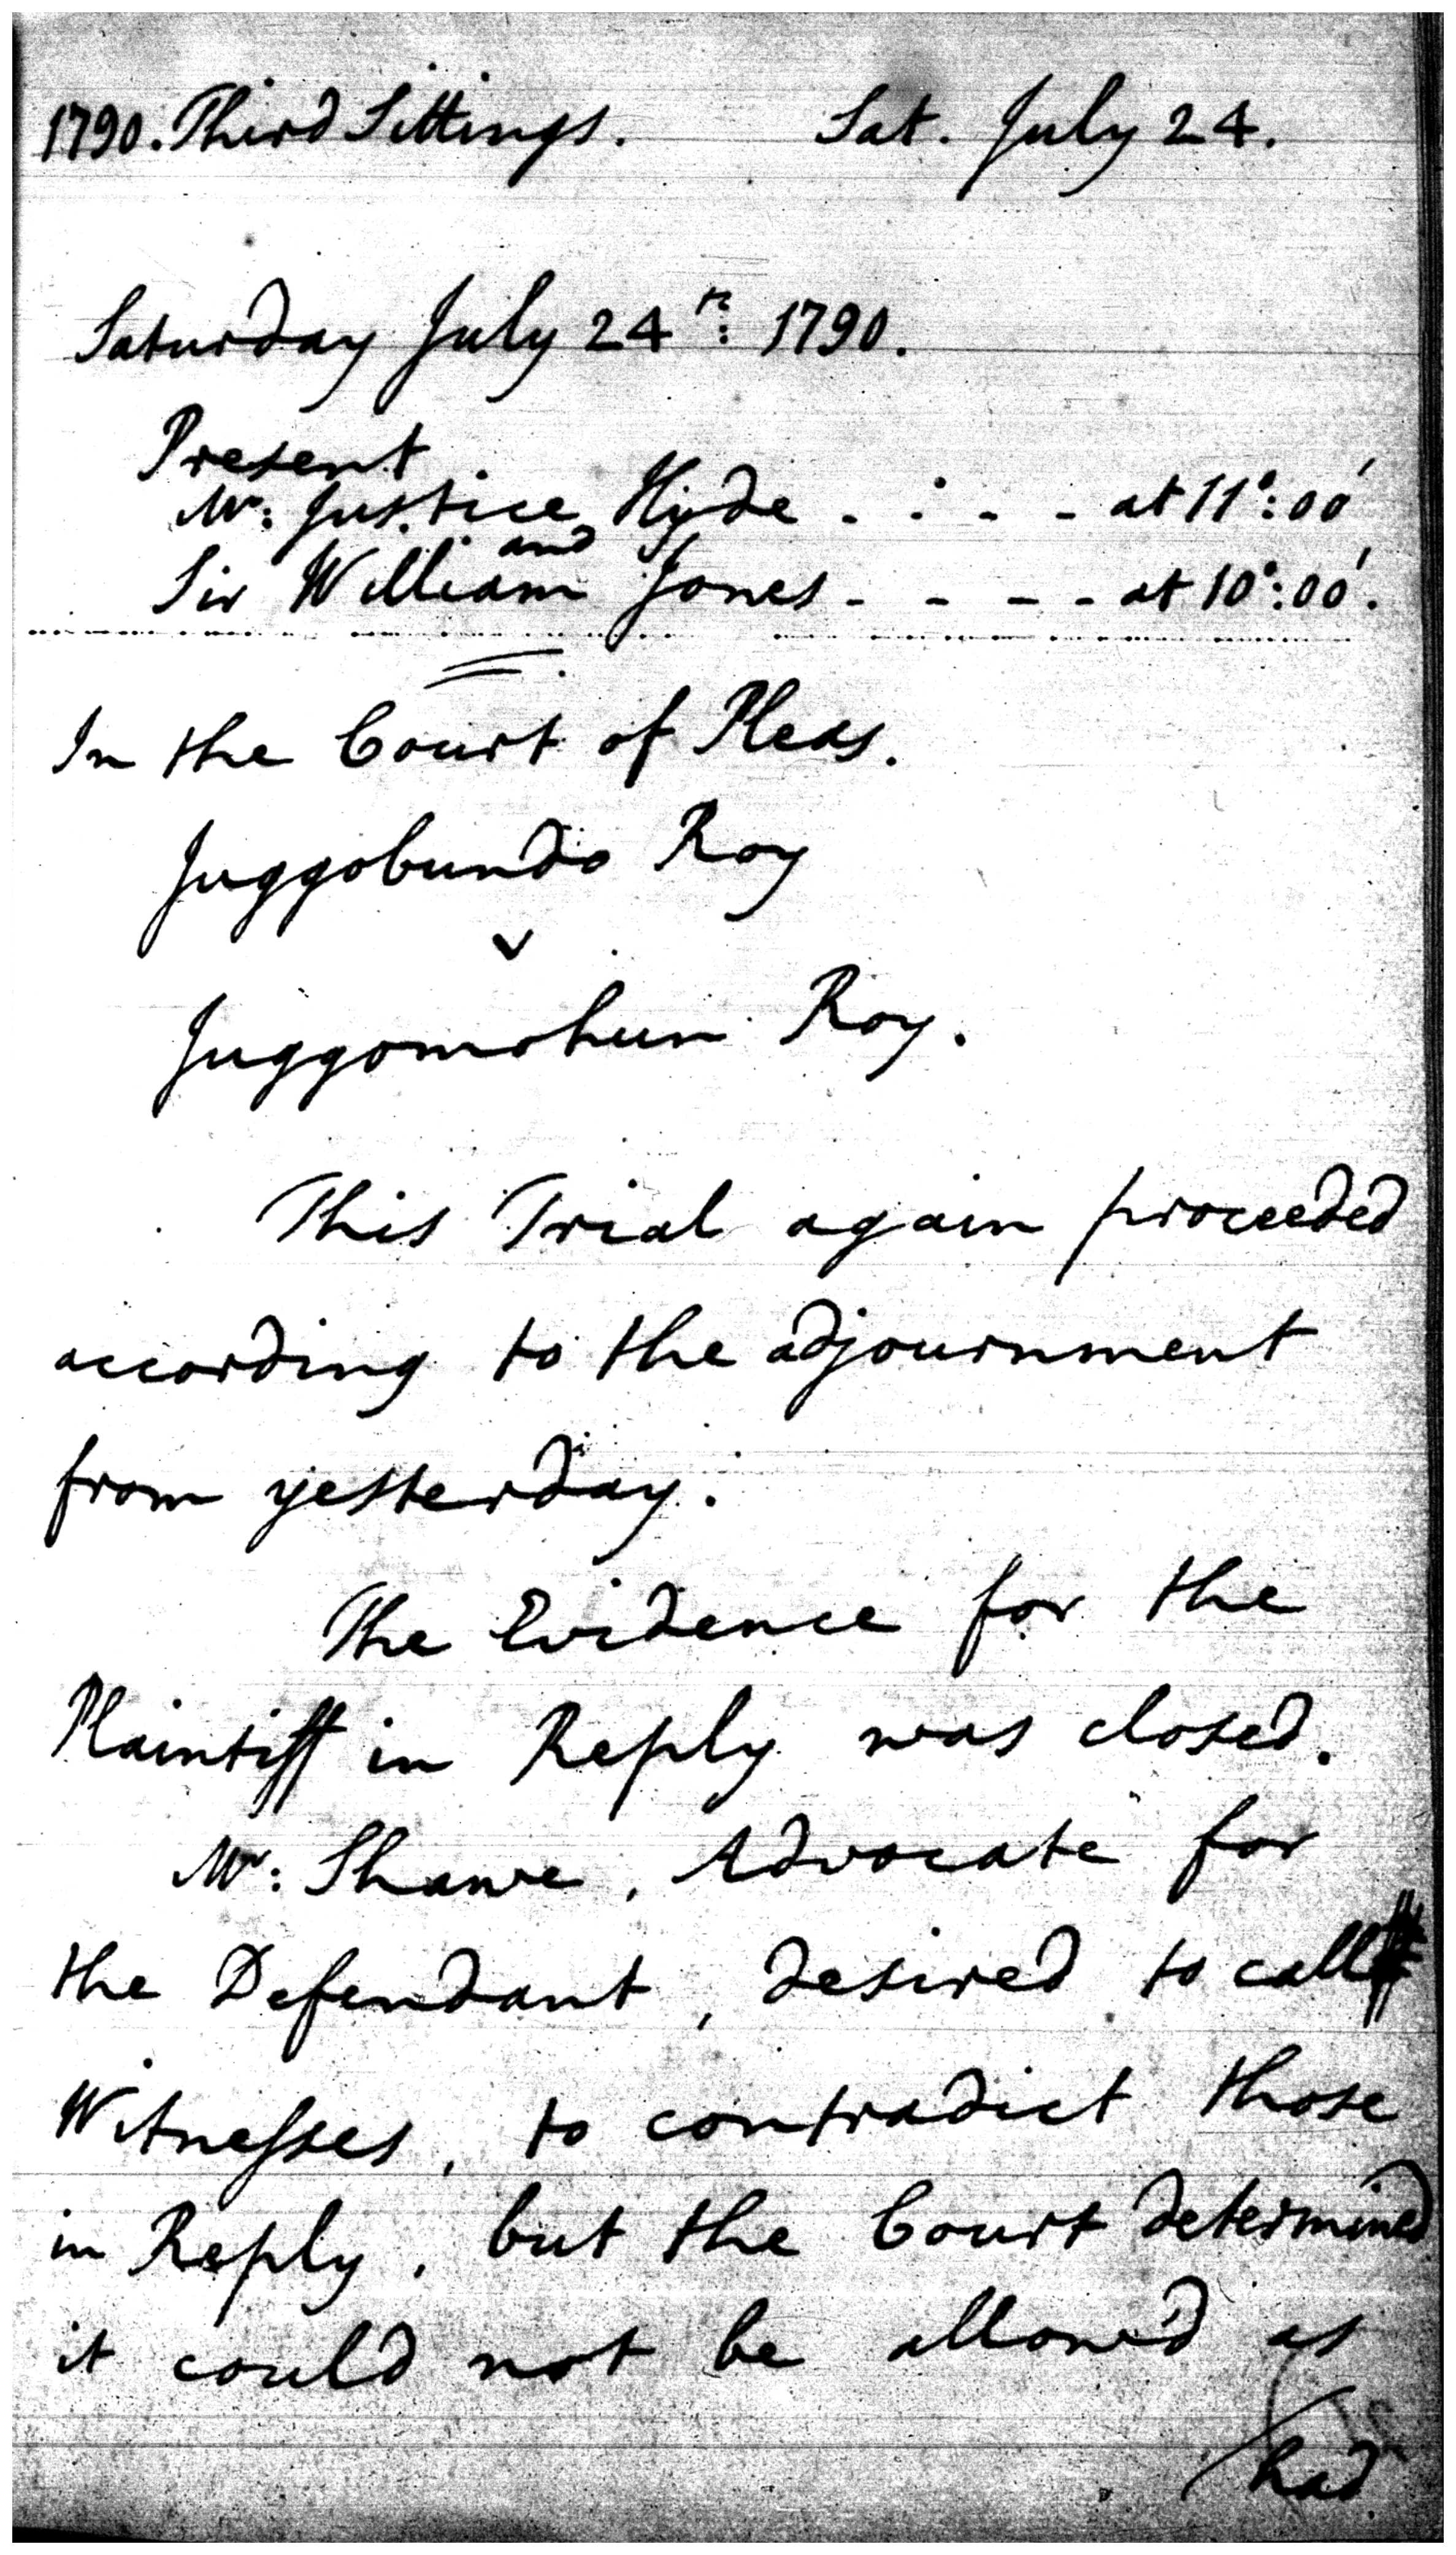 1790. Third Sittings. Sat. July 24.
Saturday July 24th: 1790.
Present
Mr: Justice Hyde - - - - at 11°:00'
and
Sir William Jones - - - - at 10°:00'.
In the Court of Pleas.
Juggobundo Roy
v
Juggomohun Roy.
This Trial again proceeded
according to the adjournment
from yesterday.
The Evidence for the
Plaintiff in Reply was closed.
Mr: Shawe, Advocate for
the Defendant, desired to call
Witnesses, to contradict those
in Reply, but the Court determined
it could not be allow'd as
had